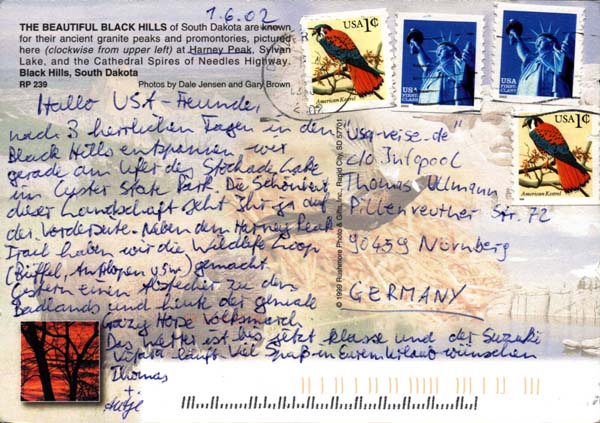 1.6.02
THE BEAUTIFUL BLACK HILLS of South Dakota are known
for their ancient granite peaks and promontories, pictured
here (clockwise from upper left) at Harney Peak, Sylvan
Lake, and the Cathedral Spires of Needles Highway.
Black Hills, South Dakota
RP 239 Photos by Dale Jensen and Gary Brown
Hallo USA-Freunde,
nach 3 herrlichen Tagen in den
Black Hills entspannen wir
gerade am Ufer des Stockade Lake
im Custer State Park. Die Schönheit
dieser Landschaft seht Ihr ja auf
der Vorderseite. Neben dem Harney Peak
Trail haben wir die Wildlife Loop
(Büffel, Antilopen usw) gemacht
Gestern ein Abstecher zu den
Badlands und heute der geniale
Crazy Horse Volksmarch
Das Wetter ist bis jetzt klasse und der Suzuki
Vitara läuft. Viel Spaß in Eurem Urlaub wünschen
Thomas
+
Antje
© 1999 Rushmore Photo & Gifts, Inc., Rapid City, SD 57701
USA 1¢
American Kestrel
USA
FIRST CLASS
USA
FIRST CLASS
USA 1¢
American Kestrel
"usa-reise.de"
c/o Infopool
Thomas Ullmann
Pillenreuther Str. 72
90459 Nürnberg
GERMANY